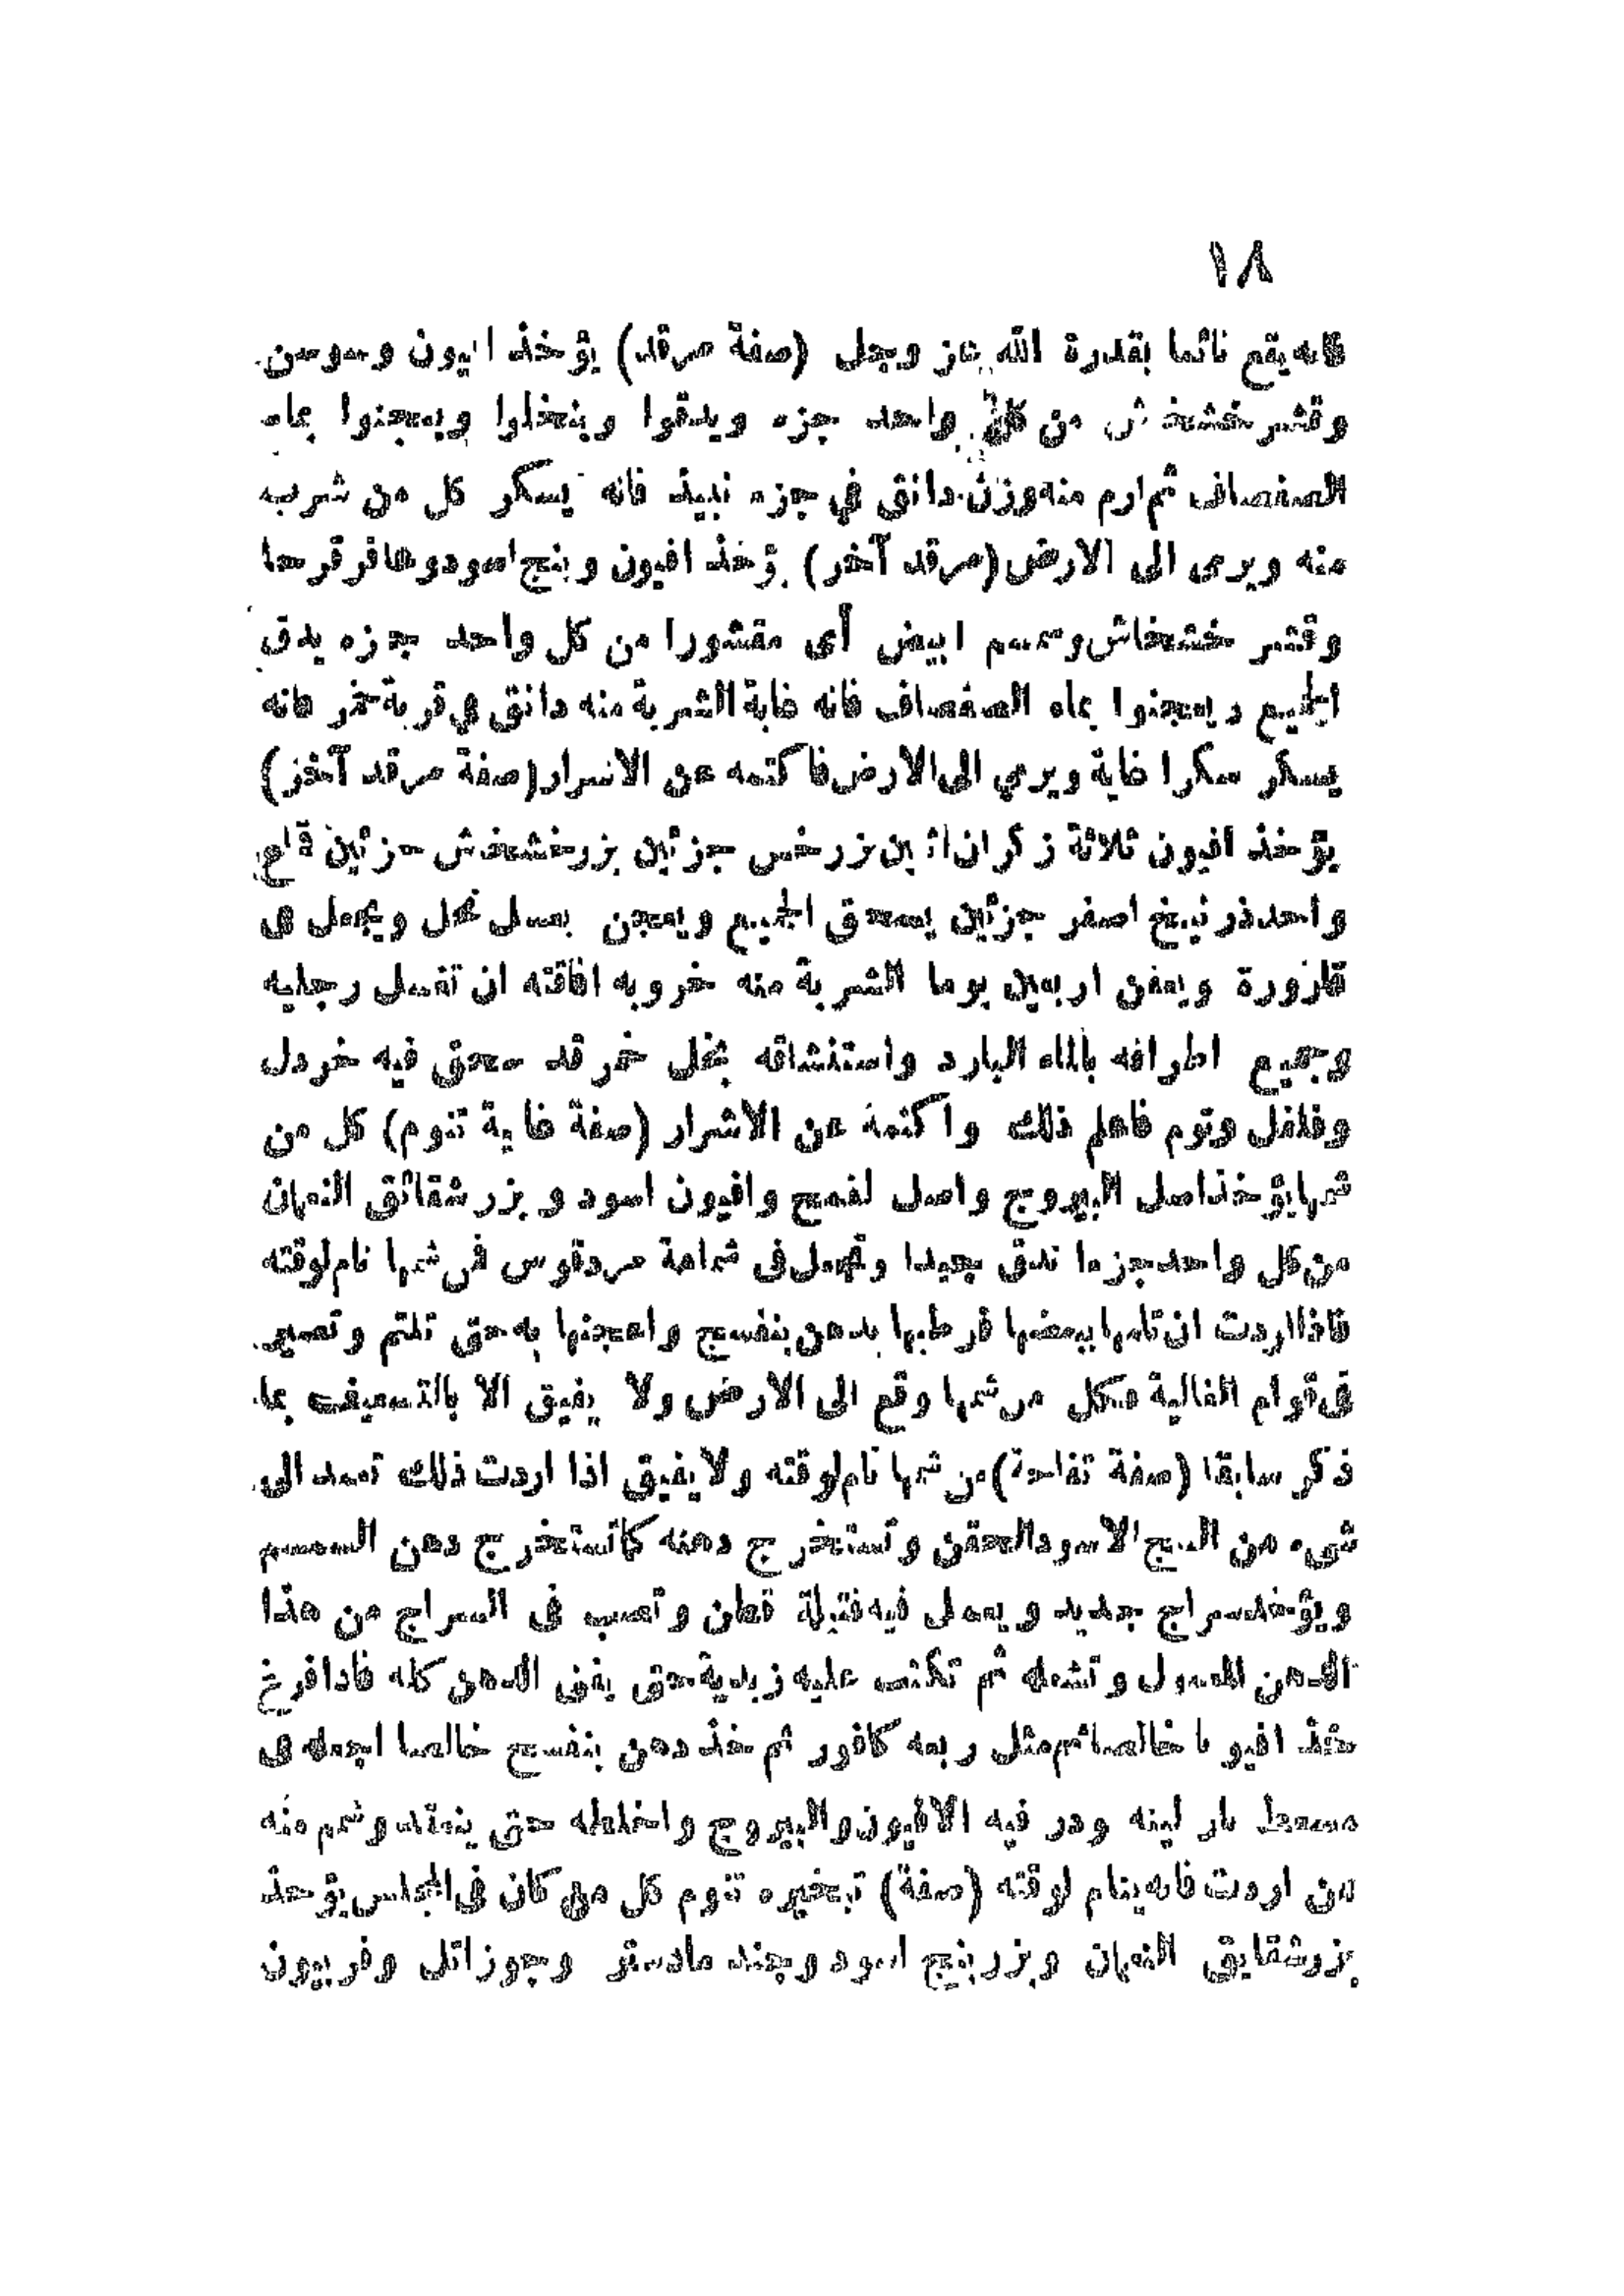 ١٨
فانه يقع نائما بقدرة الله عز وجل (صفة مرقد) يؤخذ افيون وسوسن
وقشر خشخاش من كل واحد جزء ويدقوا وينخلوا ويعجنوا بماء
الصفصاف ثم ارم منه وزن دانق في جزء نبيذ فانه يسكر كل من شرب
منه ويرمى الى الارض (مرقد آخر) يؤخذ افيون وبنج اسود وعاقر قرحا
وقشر خشخاش وسمسم ابيض أى مقشورا من كل واحد جزء يدق
الجميع ويعجنوا بماء الصفصاف فانه غاية الشربة منه دانق في قربة خمر فانه
يسكر سكرا غاية ويرمي الى الارض فاكتمه عن الاشرار (صفة مرقد آخر)
يؤخذ افيون ثلاثة زكران اثنين بزر خس جزئين بزر خشخاش جزئين
واحد زرنيخ اصفر جزئين يسحق الجميع ويعجن بعسل نحل ويجعل فى
قازورة ويعفن اربعين يوما الشربة منه خروبه افاقته ان تغسل رجليه
وجميع اطرافه بالماء البارد واستنشاقه بخل خمر قد سحق فيه خردل
وفلفل وتوم فاعلم ذلك واكتمه عن الاشرار (صفة غاية تنوم) كل من
شمها يؤخذ اصل اليبروج واصل لفسح وافيون اسود وبزر شقائق النعمان
من كل واحد جزءا تدق جيدا وتجعل فى شمامة مردقوس فمن شمها نام لوقته
فاذا اردت ان تلمها ببعضها فرطبها بدهن بنفسج واعجنها به حتى تلتم وتصير
فى قوام الغالية فكل من شمها وقع الى الارض ولا يفيق الا بالتسعيف بما
ذكر سابقا (صفة تفاحة) من شمها نام لوقته ولا يفيق اذا اردت ذلك تعمد الى
شىء من البنج الاسود العقن وتستخرج دهنه كما تستخرج دهن السمسم
ويؤخذ سراج جديد ويعمل فيه فتيلة قطن وتصب فى السراج من هذا
الدهن المعمول وتشعله ثم تكتب عليه زبدية حتى يفنى الدهن كله فادا فرغ
خذ افيونا خالصا ثم مثل ربعه كافور ثم خذ دهن بنفسج خالصا اجعله فى
مسعط نار لينه ودر فيه الافيون واليبروج واخلطه حتى ينعقد وشم منه
من اردت فانه ينام لوقته (صفة) تبخيره تنوم كل من كان فى المجلس يؤخذ
بزر شقايق النعمان وبزر بنج اسود وجند مادستر وجوز اتل وفربيون